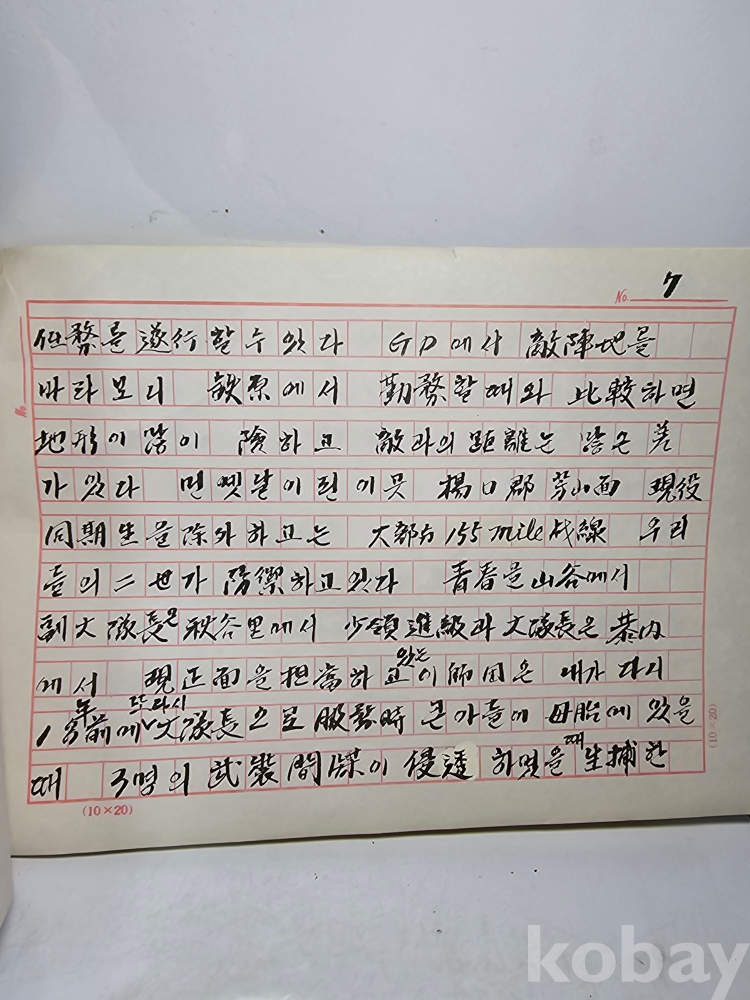 No. 7
任務를 遂行할수있다 GP에서 敵陣地를
바라보니 鐵原에서 勤務할때와 比較하면
地形이 많이 險하고 敵과의 距離는 많은 差
가 있다 먼 옛날이된 이곳 楊口郡 方山面 現役
同期生을 除外하고는 大部가 155 mile 戰線 우리
들의 二世가 防禦하고있다 靑春을 山谷에서
副大隊長은 秋谷里에서 少領進級과 大隊長은
에서 現正面을 担當하고있는 이師団은 내가 다시
13年前에 또다시 大隊長으로 服務時 큰아들이 母胎에 있을
때 3명의 武裝間諜이 侵透하였을때 生捕한
(10×20)
(10×20)
No.
kobay